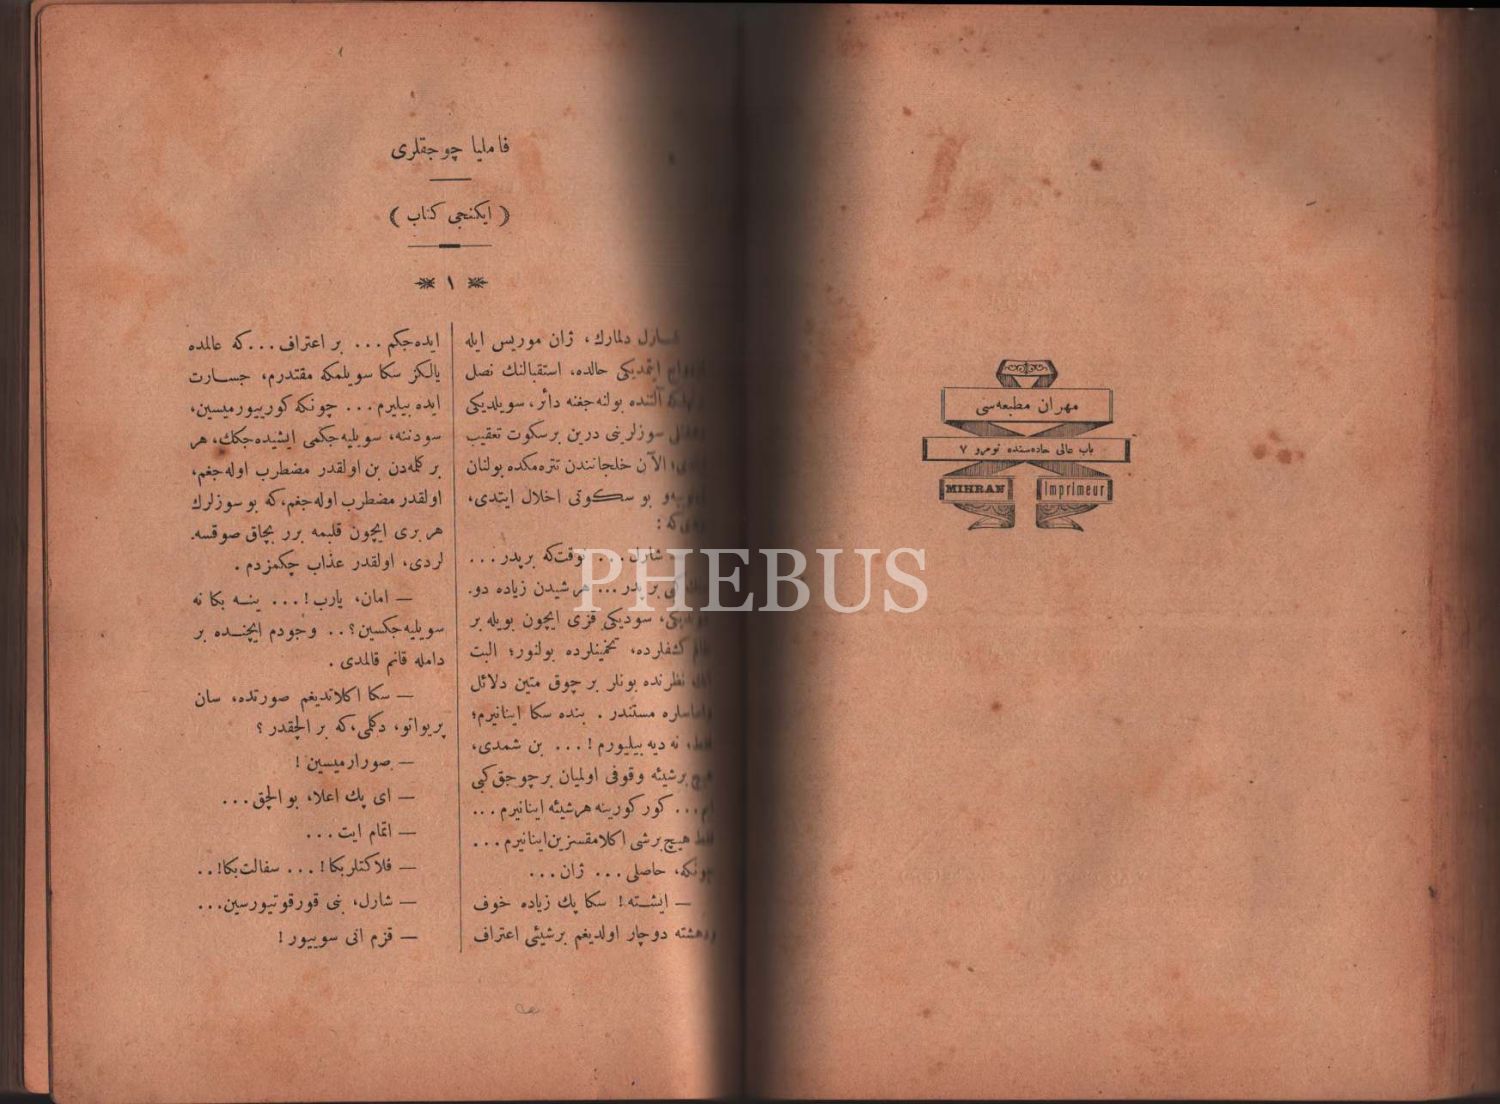 مهران مطبعه‌سی
باب عالی جاده‌سنده نومرو ۷
MIHRAN Imprimeur
فاملیا چوجقلری
( ایکنجی کتاب )
۱
شارل دلمارك، ژان موریس ایله
ایتمدیکی حالده، استقبالنك نصل
آلتنده بولنه‌جغنه دائر، سویلدیکی
سوزلرینی درین بر سکوت تعقیب
الآن خلجانندن تتره‌مکده بولنان
بو سکوتی اخلال ایتدی،
که :
شارل... بر پدر...
کبی بر پدر... هر شیدن زیاده دو.
سودیکی قزی ایچون بویله بر
کشفلرده، تخمینلرده بولنور؛ البت
نظرنده بونلر بر چوق متین دلائل
مستنددر . بنده سکا اینانیرم؛
نه دیه بیلیورم!... بن شمدی،
هیچ بر شیئه وقوفی اولمیان بر چوجق کبی
... کور کورینه هر شیئه اینانیرم...
هیچ بر شی اکلامقسزین اینانیرم...
چونکه، حاصلی... ژان...
— ایشته! سکا پك زیاده خوف
ودهشته دوچار اولدیغم بر شیئی اعتراف
ایده‌جکم... بر اعتراف...که عالمده
یالکز سکا سویلمکه مقتدرم، جسارت
ایده بیلیرم... چونکه کورییورمیسین،
سودننه، سویلیه‌جکمی ایشیده‌جکك، هر
بر کله‌دن بن اولقدر مضطرب اوله‌جغم،
اولقدر مضطرب اوله‌جغم،که بو سوزلرك
هر بری ایچون قلبمه برر بچاق صوقسه.
لردی، اولقدر عذاب چکمزدم .
— امان، یارب!... ینه بکا نه
سویلیه‌جکسین؟.. وجودم ایچنده بر
دامله قانم قالمدی .
— سکا اکلاتدیغم صورتده، سان
پریواتو، دکلمی،که بر الچقدر ؟
— صورارمیسین!
— ای پك اعلا، بو الچق...
— اتمام ایت...
— فلاکتلر بکا!... سفالت بکا!..
— شارل، بنی قورقوتیورسین...
— قزم انی سوییور!
PHEBUS